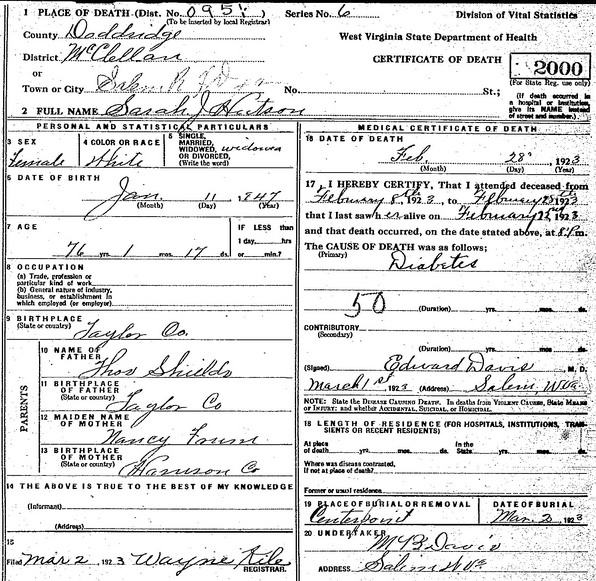 1 PLACE OF DEATH (Dist. No. 0951 Series No. 6 Division of Vital Statistics
(To be inserted by local Registrar)
County Doddridge West Virginia State Department of Health
District McClellan CERTIFICATE OF DEATH
or
Town or City Salem R No. St.; 2000
(For State Reg. use only)
(If death occurred in a hospital or institution, give its NAME instead of street and number.)
2 FULL NAME Sarah J Hutson
PERSONAL AND STATISTICAL PARTICULARS
3 SEX
Female
4 COLOR OR RACE
White
SINGLE,
MARRIED,
WIDOWED, widowed
OR DIVORCED,
(Write the word)
5 DATE OF BIRTH
Jan. 11, 1847
(Month) (Day) (Year)
7 AGE
76 yrs. 1 mos. 17 ds.
IF LESS than
1 day, hrs
or min.?
8 OCCUPATION
(a) Trade, profession or
particular kind of work
(b) General nature of industry,
business, or establishment in
which employed (or employer)
9 BIRTHPLACE
(State or country) Taylor Co.
PARENTS
10 NAME OF
FATHER Thos Shields
11 BIRTHPLACE
OF FATHER
(State or country) Taylor Co
12 MAIDEN NAME
OF MOTHER
Nancy
13 BIRTHPLACE
OF MOTHER
(State or country) Harrison Co
14 THE ABOVE IS TRUE TO THE BEST OF MY KNOWLEDGE
(Informant)
(Address)
15
Filed Mar 2, 1923 Wayne Kile
REGISTRAR.
MEDICAL CERTIFICATE OF DEATH
16 DATE OF DEATH
Feb. 28, 1923
(Month) (Day) (Year)
17 I HEREBY CERTIFY, That I attended deceased from
February 8th 1923, to February 28th 1923
that I last saw her alive on February 22nd 1923
and that death occurred, on the date stated above, at 8 P.m.
The CAUSE OF DEATH was as follows;
(Primary)
Diabetes
50
(Duration) yrs. mos. ds.
CONTRIBUTORY
(Secondary)
(Duration) yrs. mos. ds.
(Signed) Edward Davis M. D.
March 1st, 1923 (Address) Salem W Va.
NOTE: State the DISEASE CAUSING DEATH. In deaths from VIOLENT CAUSES, State MEANS
OF INJURY; and whether ACCIDENTAL, SUICIDAL, OR HOMICIDAL.
18 LENGTH OF RESIDENCE (FOR HOSPITALS, INSTITUTIONS, TRANSIENTS OR RECENT RESIDENTS)
At place In the
of death yrs. mos. ds. State yrs. mos. ds.
Where was disease contracted,
if not at place of death?
Former or usual residence
19 PLACE OF BURIAL OR REMOVAL DATE OF BURIAL
Centerpoint Mar. 2, 1923
20 UNDERTAKER
Davis
ADDRESS Salem W Va